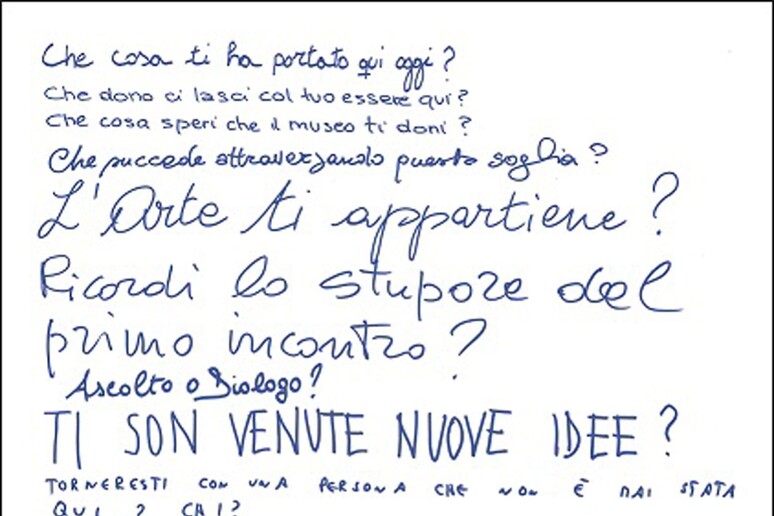 Che cosa ti ha portato qui oggi?
Che dono ci lasci col tuo essere qui?
Che cosa speri che il museo ti doni?
Che succede attraversando questa soglia?
L'Arte ti appartiene?
Ricordi lo stupore del
primo incontro?
Ascolto o Dialogo?
TI SON VENUTE NUOVE IDEE?
TORNERESTI CON UNA PERSONA CHE NON È MAI STATA
QUI? CHI?